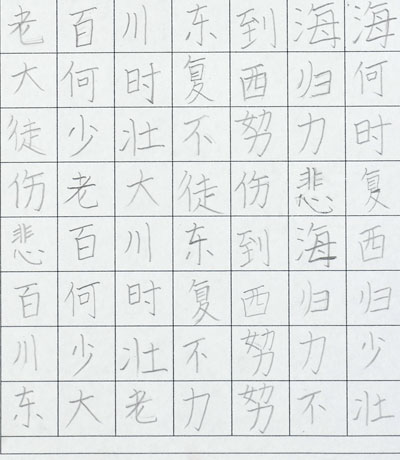 老百川东到海海
大何时复西归何
徒少壮不努力时
伤老大徒伤悲复
悲百川东到海西
百何时复西归归
川少壮不努力少
东大老力努不壮